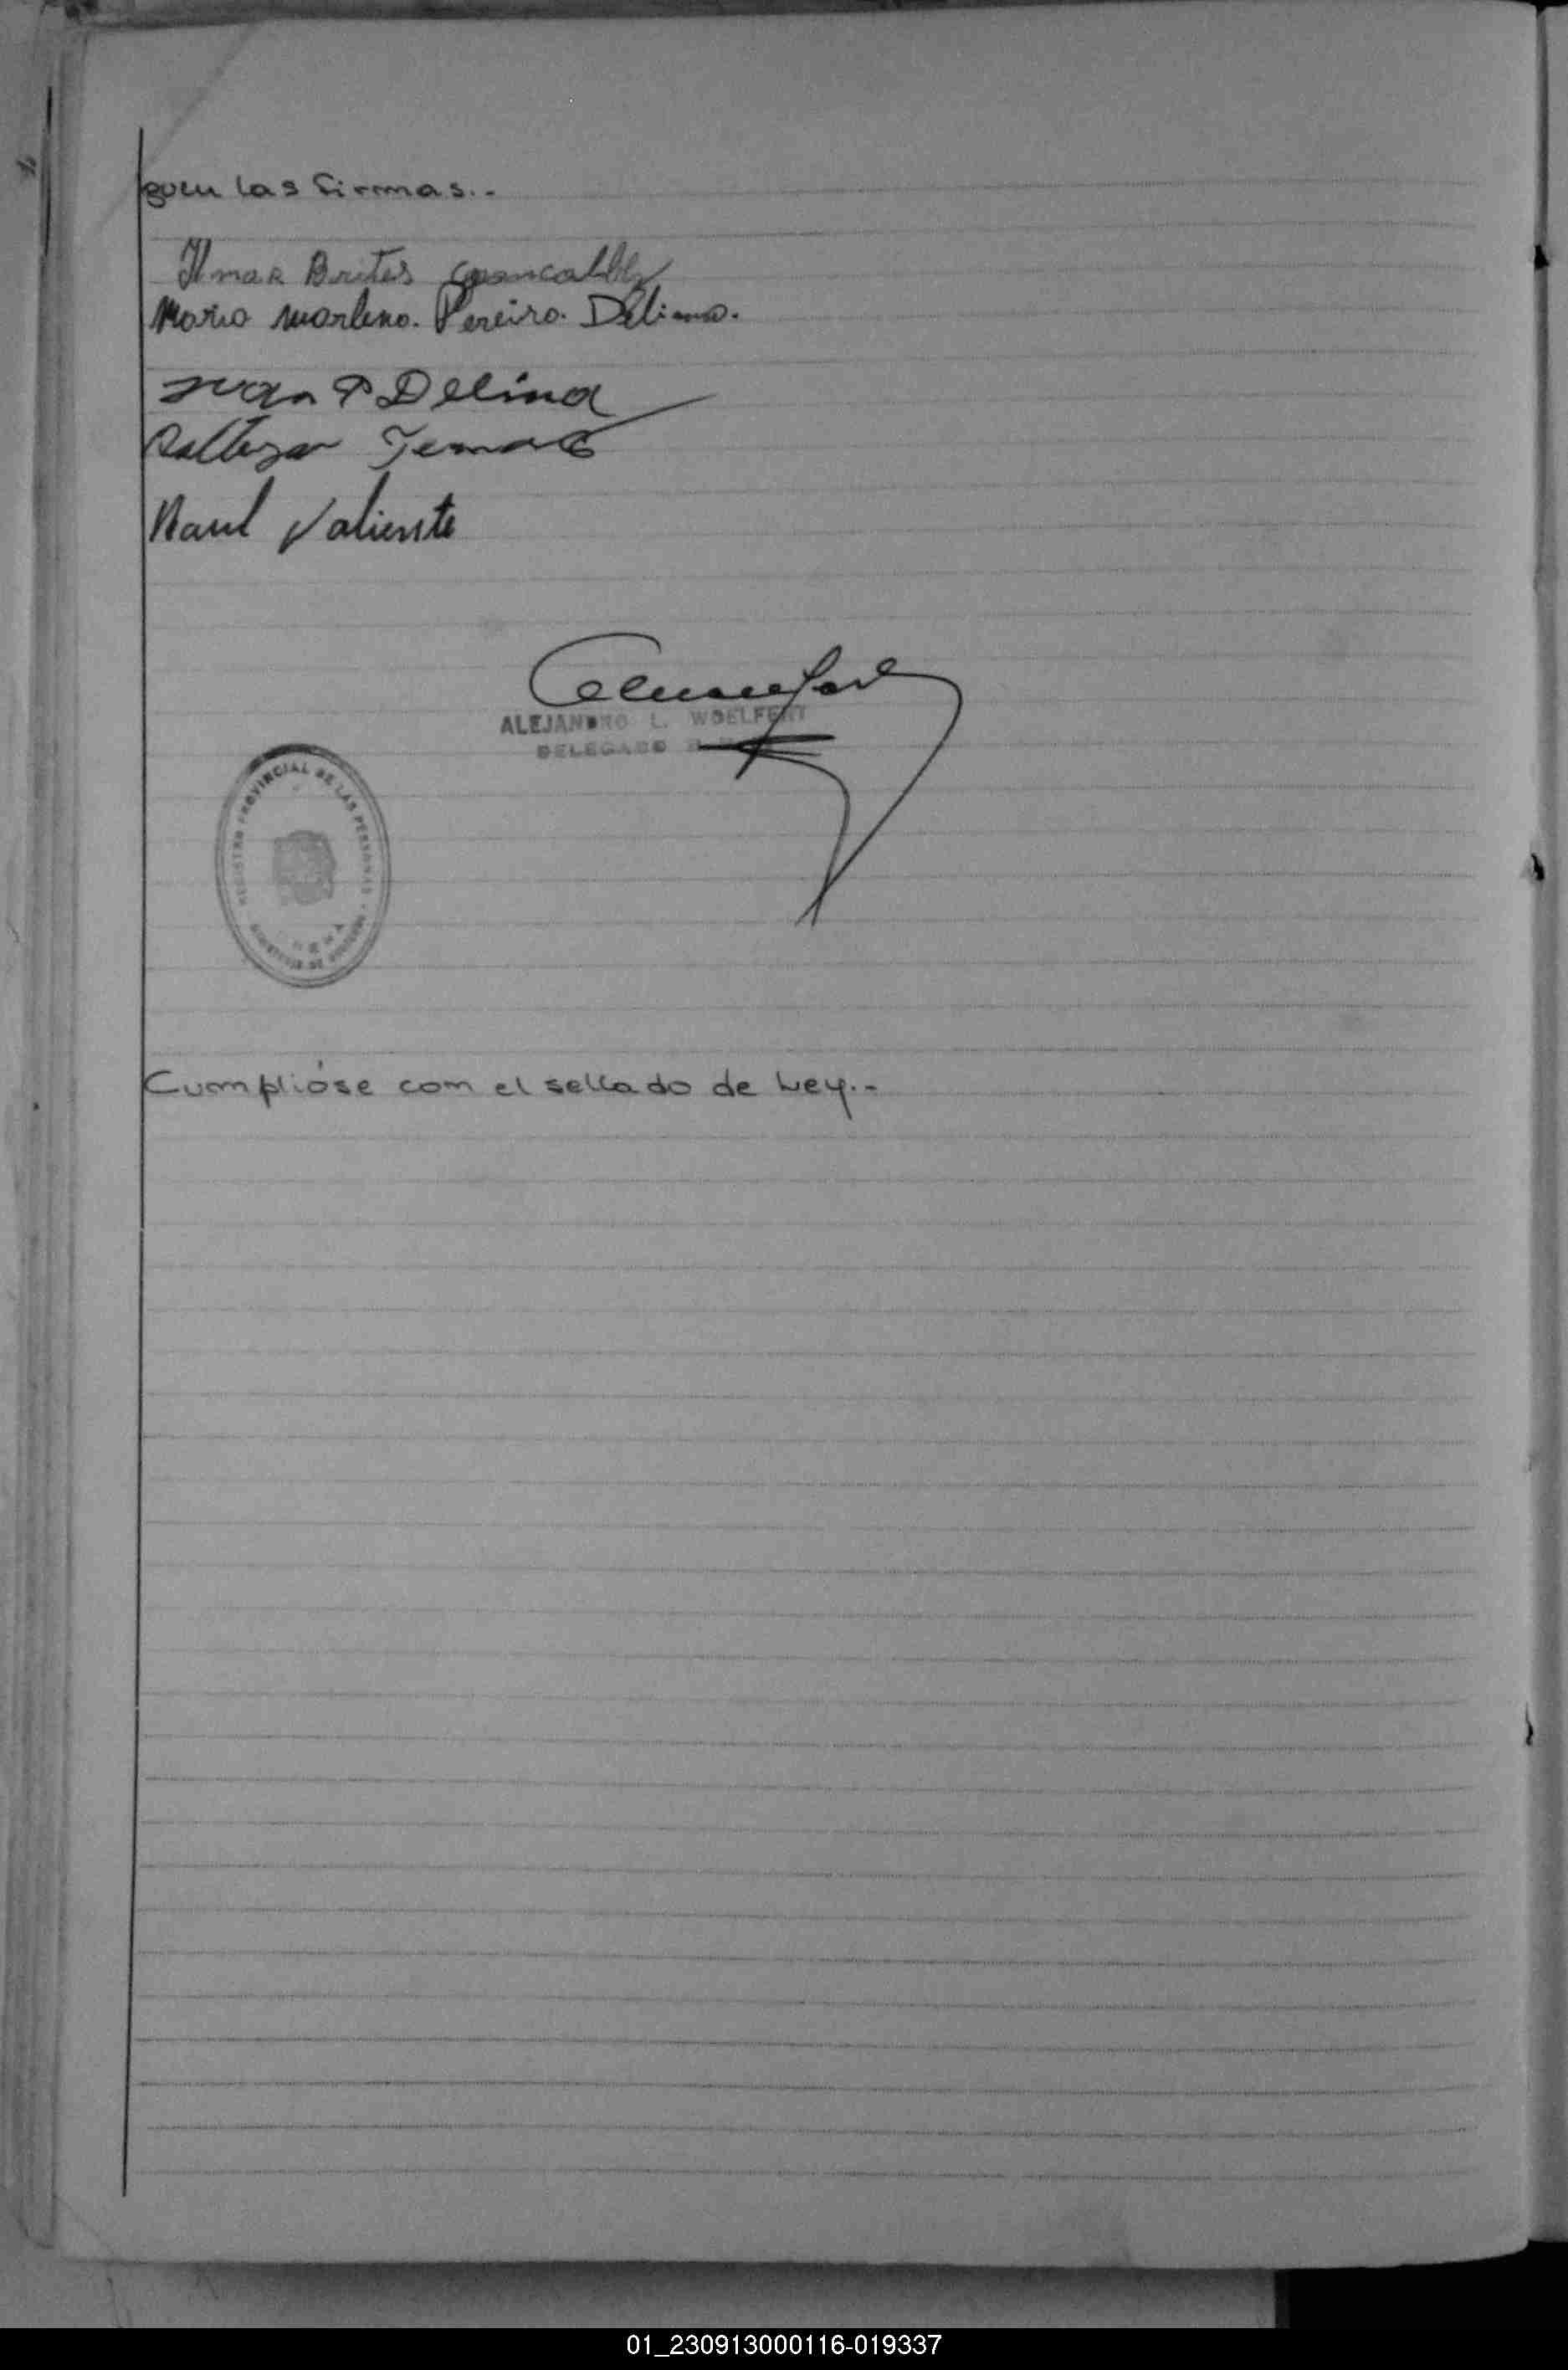 guen las firmas.-
Ilmar Brites
Mario Marleno. Pereiro. Deliama.
Juan P Delina
Baltezar
Raul Valiente
ALEJANDRO L. WOELFERT
DELEGADO
REGISTRO PROVINCIAL DE LAS PERSONAS
MINISTERIO DE GOBIERNO
Cumplióse con el sellado de Ley.-
01_230913000116-019337